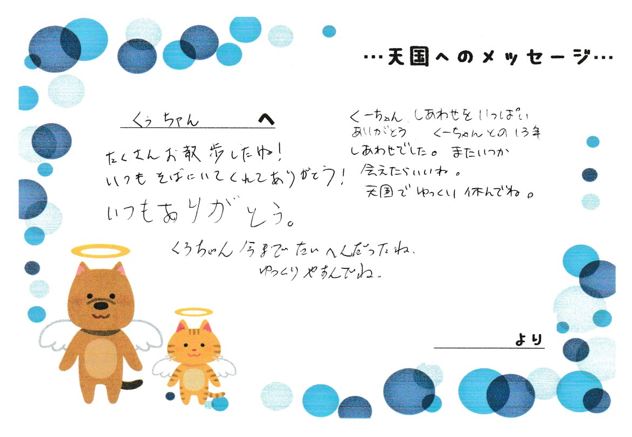 …天国へのメッセージ…
くぅちゃん へ
たくさんお散歩したね!
いつもそばにいてくれてありがとう!
いつもありがとう。
くぅちゃん 今までたいへんだったね、
ゆっくりやすんでね。
くーちゃん しあわせをいっぱい
ありがとう くーちゃんとの13年
しあわせでした。またいつか
会えたらいいわ。
天国でゆっくり休んでね。
より